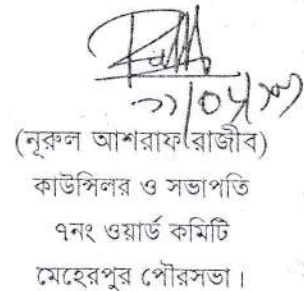 (নূরুল আশরাফ রাজীব)
কাউন্সিলর ও সভাপতি
৭নং ওয়ার্ড কমিটি
মেহেরপুর পৌরসভা।